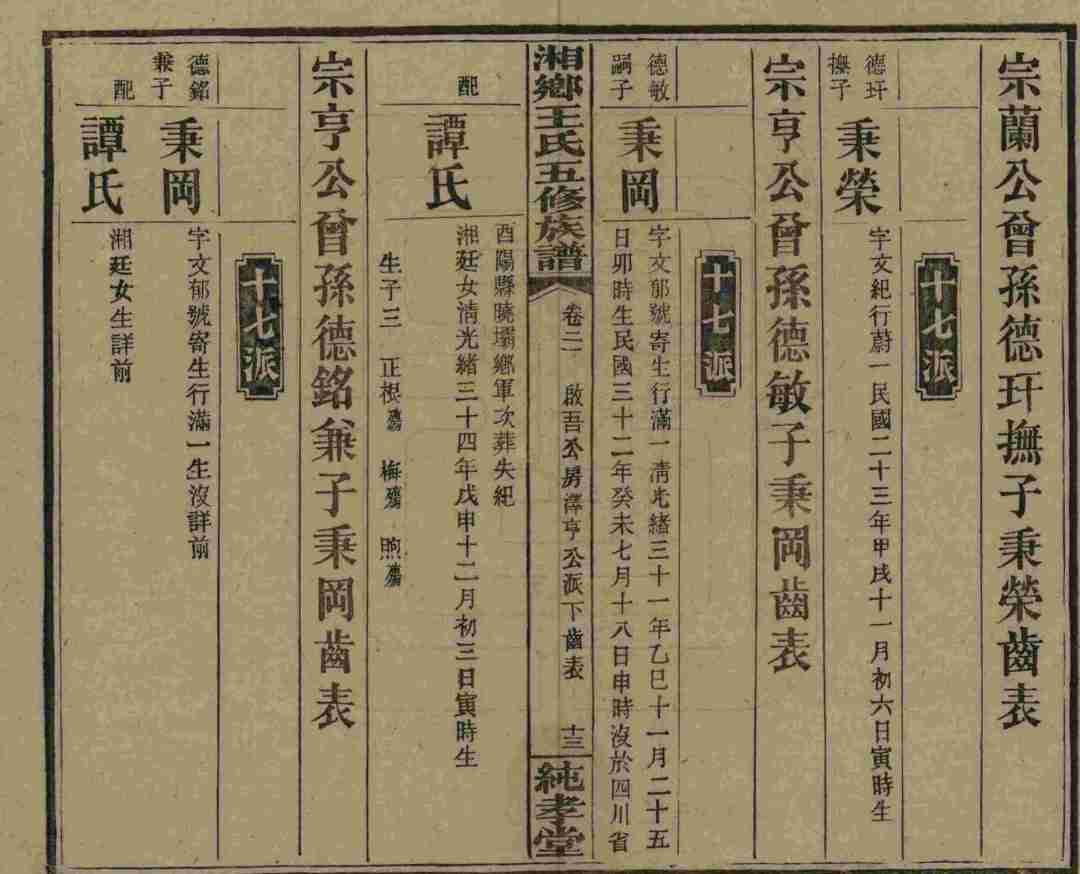 宗蘭公曾孫德玕撫子秉榮齒表
十七派
德玕
撫子
秉榮
字文紀行蔚一民國二十三年甲戌十一月初六日寅時生
宗亨公曾孫德敏子秉岡齒表
十七派
德敏
嗣子
秉岡
字文郁號寄生行滿一清光緒三十一年乙巳十一月二十五
日卯時生民國三十二年癸未七月十八日申時沒於四川省
湘鄉王氏五修族譜
卷二
啟吾公房澤亨公派下齒表
十三
純孝堂
酉陽縣曉壩鄉軍次葬失紀
配
譚氏
湘廷女清光緒三十四年戊申十二月初三日寅時生
生子三 正根殤 梅殤 煦殤
宗亨公曾孫德銘兼子秉岡齒表
十七派
德銘
兼子
秉岡
字文郁號寄生行滿一生沒詳前
配
譚氏
湘廷女生詳前